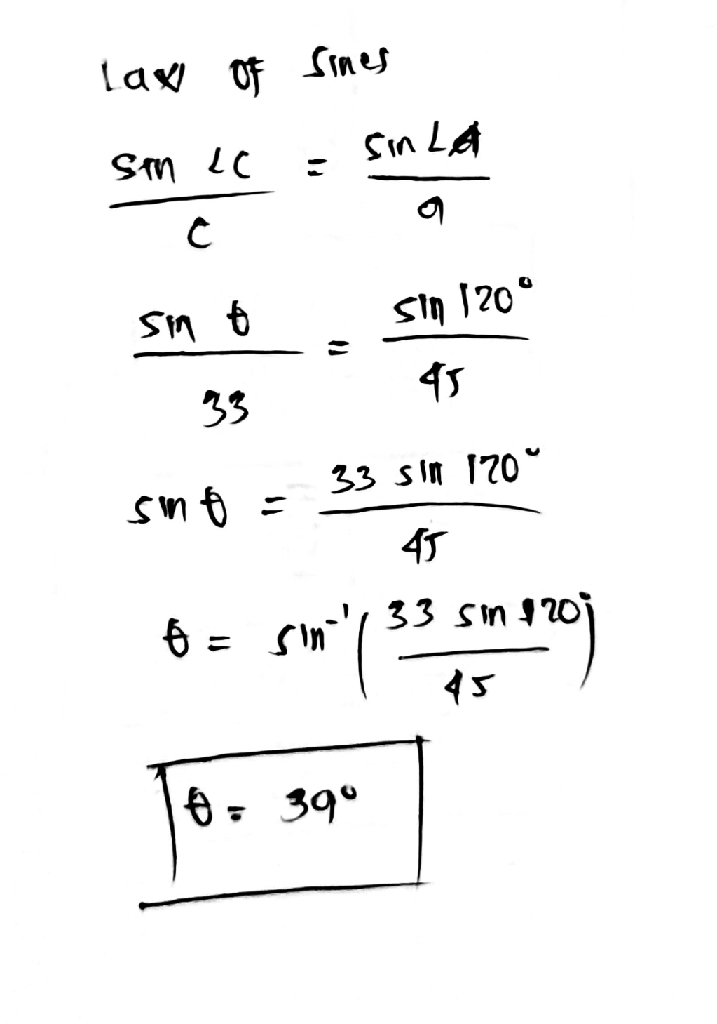 Law of Sines
sin ∠C / c = sin ∠A / a
sin θ / 33 = sin 120° / 45
sin θ = 33 sin 120° / 45
θ = sin⁻¹( 33 sin 120° / 45 )
θ = 39°